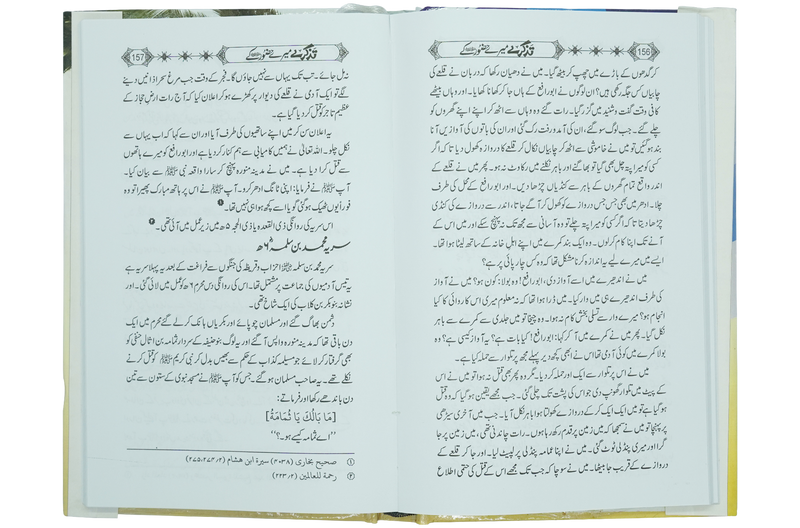 156
تذکرے میرے حضور ﷺ کے
کر گدھوں کے باڑے میں چھپ کر بیٹھ گیا۔ میں نے دھیان رکھا کہ دربان نے قلعے کی
چابیاں کس جگہ رکھی ہیں؟ ان لوگوں نے ابورافع کے ہاں جا کر کھانا کھایا۔ اور وہاں بیٹھے
کافی وقت گفت و شنید میں گزر گیا۔ رات گئے وہ وہاں سے اٹھ کر اپنے اپنے گھروں کو
چلے گئے۔ جب لوگ سو گئے، ان کی آمد ورفت رک گئی اور ان کی باتوں کی آوازیں آنا
بند ہو گئیں تو میں نے خاموشی سے اٹھ کر چابیاں نکال کر قلعے کا دروازہ کھول دیا تا کہ اگر
کسی کو میرا پتہ چل بھی گیا تو بھاگنے اور باہر نکلنے میں رکاوٹ نہ ہو۔ پھر میں نے قلعے کے
اندر واقع تمام گھروں کے باہر سے کنڈیاں چڑھا دیں۔ اور ابورافع کے محل کی طرف
چلا۔ ادھر میں بھی جس جس دروازے کو کھول کر آگے جاتا، اندر سے دروازے کی کنڈی
چڑھا دیتا تا کہ اگر کسی کو میرا پتہ چلے تو وہ آسانی سے مجھ تک نہ پہنچ سکے اور میں اس کے
آنے تک اپنا کام کر لوں۔ وہ ایک بند کمرے میں اپنے اہل خانہ کے ساتھ لیٹا ہوا تھا۔
ایسے میں میرے لیے یہ اندازہ کرنا مشکل تھا کہ وہ کس چار پائی پر ہے؟
میں نے اندھیرے میں اسے آواز دی، ابورافع! وہ بولا: کون ہو؟ میں نے آواز
کی طرف اندھیری ہی میں وار کیا۔ میں ڈرا ہوا تھا کہ نہ معلوم میری اس کاروائی کا کیا
انجام ہو؟ میرے وار سے تسلی بخش کام نہ ہوا۔ وہ چیخا تو میں جلدی سے کمرے سے باہر
نکل گیا۔ پھر میں نے کمرے میں آ کر کہا: ابورافع! کیا بات ہے؟ یہ آواز کیسی ہے؟ وہ
بولا کمرے میں کوئی آدمی تھا اس نے ابھی کچھ دیر پہلے مجھ پر تلوار سے حملہ کیا ہے۔
میں نے اس پر تلوار سے ایک اور حملہ کر دیا۔ مگر وہ پھر بھی قتل نہ ہوا تو میں نے اس
کے پیٹ میں تلوار گھونپ دی جو اس کی پشت تک چلی گئی۔ جب مجھے یقین ہو گیا کہ وہ قتل
ہو گیا ہے تو میں ایک ایک کر کے دروازے کھولتا ہوا باہر نکل آیا۔ جب میں آخری سیڑھی
پر پہنچا تو میں نے سمجھا کہ میں زمین پر قدم رکھ رہا ہوں۔ رات چاندنی تھی، میں زمین پر جا
گرا اور میری پنڈلی ٹوٹ گئی۔ میں نے اپنا عمامہ پنڈلی پر لپیٹ لیا۔ اور جا کر قلعے کے
دروازے کے قریب جا بیٹھا۔ میں نے سوچا کہ جب تک مجھے اس کے قتل کی حتمی اطلاع
157
تذکرے میرے حضور ﷺ کے
نہ مل جائے۔ تب تک یہاں سے نہیں جاؤں گا۔ فجر کے وقت جب مرغ سحر اذانیں دینے
لگے تو ایک آدمی نے قلعے کی دیوار پر کھڑے ہو کر اعلان کیا کہ آج رات ارض حجاز کے
عظیم تاجر کو قتل کر دیا گیا ہے۔
یہ اعلان سن کر میں اپنے ساتھیوں کی طرف آیا اور ان سے کہا کہ اب یہاں سے
نکل چلو۔ اللہ تعالیٰ نے ہمیں کامیابی سے ہم کنار کر دیا ہے اور ابورافع کو میرے ہاتھوں
سے قتل کرا دیا ہے۔ میں نے مدینہ منورہ پہنچ کر سارا واقعہ نبی ﷺ سے بیان کیا۔
آپ ﷺ نے فرمایا: اپنی ٹانگ ادھر کرو۔ آپ ﷺ نے اس پر ہاتھ مبارک پھیرا تو وہ
فوراً یوں ٹھیک ہو گئی گویا اسے کچھ ہوا ہی نہیں تھا۔ ①
اس سریہ کی روانگی ذی القعدہ یا ذی الحجہ ۵ھ میں زیر عمل میں آئی تھی۔ ②
سریہ محمد بن سلمہ ۶ھ
سریہ محمد بن سلمہ احزاب و قریظہ کی جنگوں سے فراغت کے بعد یہ پہلا سریہ ہے
یہ تیس آدمیوں کی جماعت پر مشتمل تھا۔ اس کی روانگی دس محرم ۶ھ کو عمل میں لائی گئی۔ اور
نشانہ بنو بکر بن کلاب کی ایک شاخ تھی۔
دشمن بھاگ گئے اور مسلمان چوپائے اور بکریاں ہانک کر لے گئے محرم میں ایک
دن باقی تھا کہ مدینہ منورہ واپس آ گئے اور یہ لوگ بنو حنیفہ کے سردار ثمامہ بن اثال حنفی کو
بھی گرفتار کر لائے جو مسیلمہ کذاب کے حکم سے بھیس بدل کر نبی کریم ﷺ کو قتل کرنے
نکلے تھے۔ یہ صاحب مسلمان ہو گئے۔ جس کو آپ ﷺ نے مسجد نبوی کے ستون سے تین
دن باندھے رکھا اور فرماتے:
[مَا بَالُكَ يَا ثُمَامَةُ]
’’اے ثمامہ کیسے ہو۔؟‘‘
① صحیح بخاری (۴۰۳۸) سیرۃ ابن ہشام (۲/۲۷۴،۲۷۵)
② رحمۃ للعالمین (۲/۲۲۳)